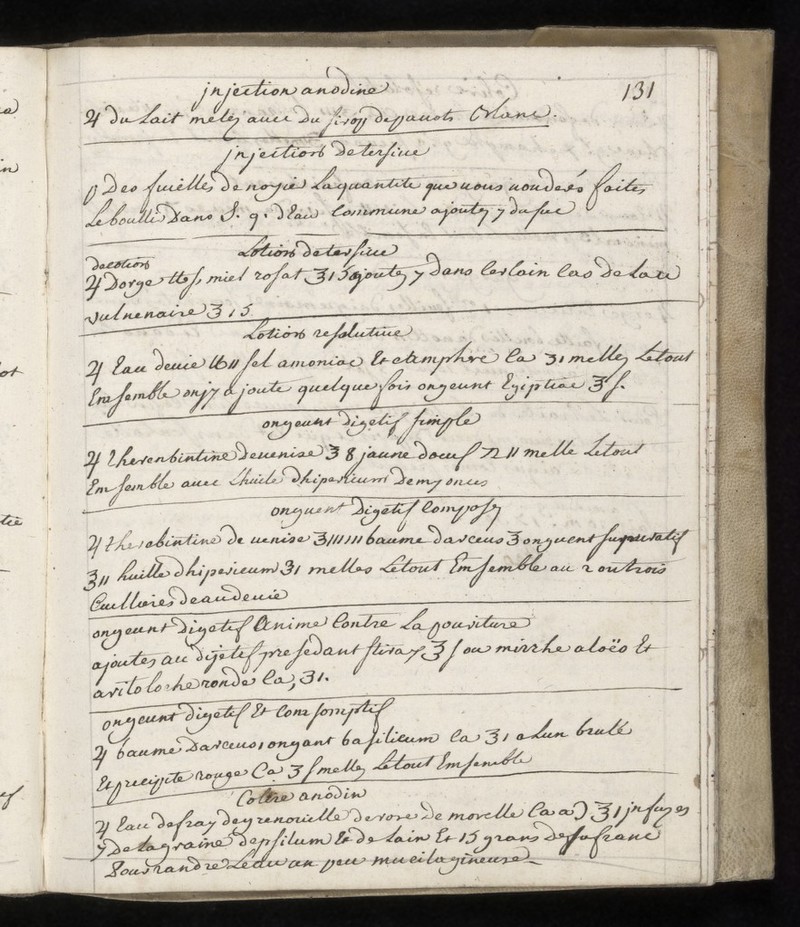 131
jnjection anodine
♃ du Lait mélez avec du sirop de pavots Blanc.
jnjection Detersive
Des fuielles de noyie La quantité que vous voudeés faites
Le boullir Dans S. q. d'Eau Commune ajoutez y du suc
Lotion detersive
decotion
♃ Dorge ttes miel rosat ʒ15 ajoutez y dans
vulnenaire ʒ15
Lotion resolutive
♃ Eau devie ℔ıı sel amoniac Et camphre Ca ʒ1 mellez Letout
Ensemble onjy ajoute quelque fois ongeunt Egiptiac ʒ s.
ongeunt digetif simple
♃ therenbintine devenise ʒ8 jaune doeuf n ıı melle Letout
Ensemble avec Lhuile dhipericum demy once
onguent Digetif Composez
♃ therabintine de venise ʒıııııı baume darceus ʒ onguent supuratif
ʒıı huille dhipericum ʒ1 melles Letout Ensemble au 2 outrois
Cuillieres deaudevie
ongeunt Digetif Anime Contre La pouriture
ajoutes au dijetif presedant stirax ʒ s ou mirrhe aloës Et
aritoloche ronde Ca, ʒ1.
ongeunt digetif Et Consomptif
♃ baume Darceus ongant basilicum Ca ʒ1 alun brulé
Et precipite rouge Ca ʒ s mellez Letout Ensemble
Colire anodin
♃ Eau defray degrenouielle derose de morelle Ca a) ʒ1 jnfuzes
y De Lagraine depsilum Et de Lain Et 15 grans de safrane
Pour randre Leau un peu mucilagineuse